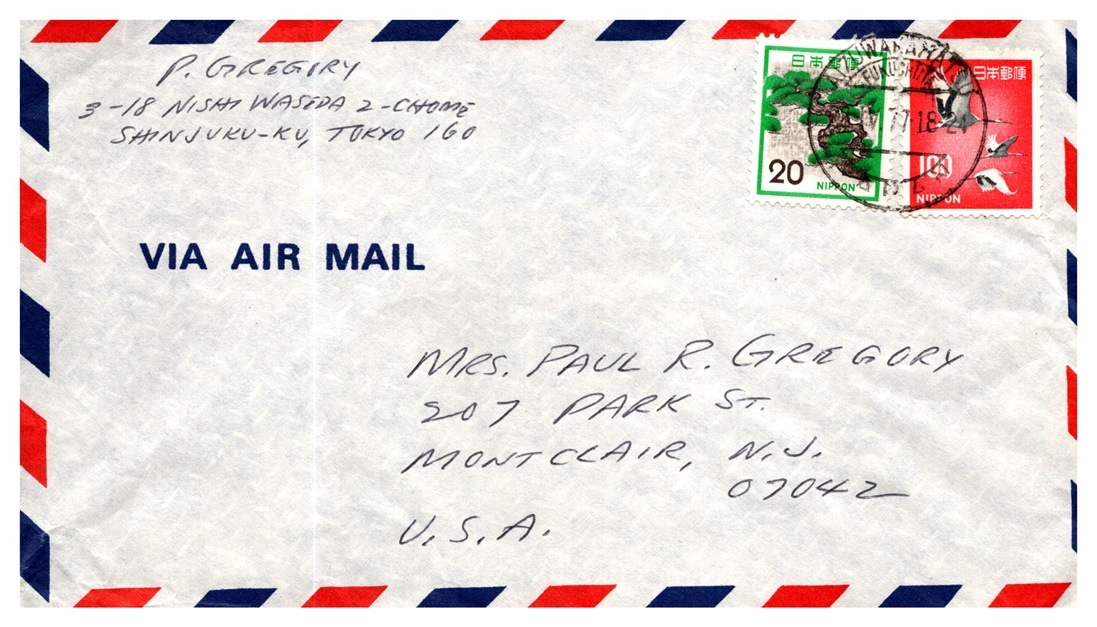 P. GREGORY
3-18 NISHI WASEDA 2-CHOME
SHINJUKU-KU, TOKYO 160
日本郵便
20
NIPPON
日本郵便
100
NIPPON
18-24
VIA AIR MAIL
MRS. PAUL R. GREGORY
207 PARK ST.
MONTCLAIR, N.J.
07042
U.S.A.